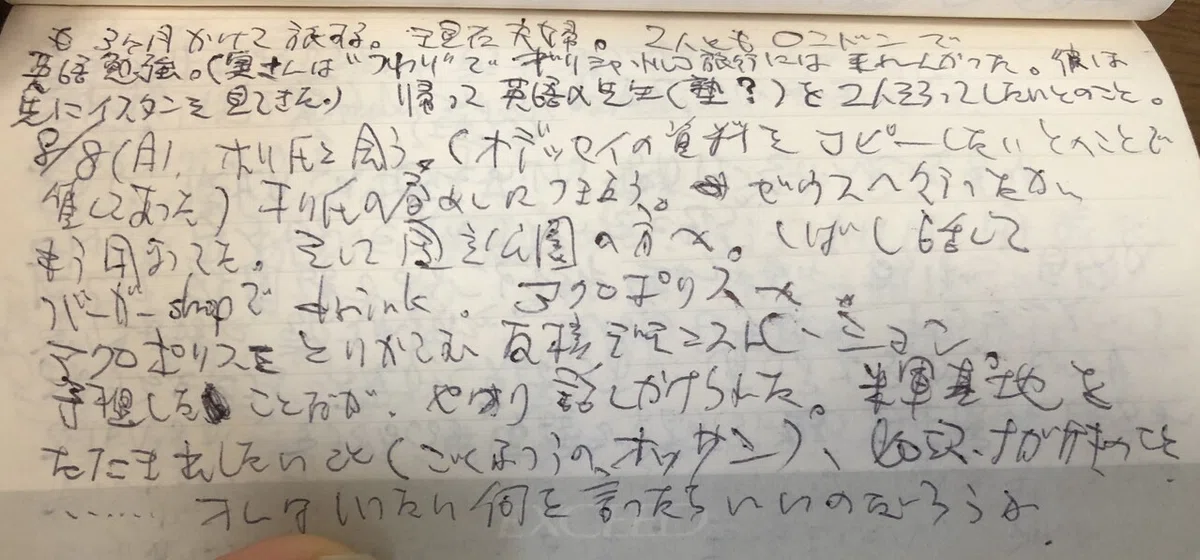 も3ヶ月かけて旅する。現在夫婦。2人ともロンドンで
英語勉強。(奥さんは"つわり"でギリシャ、トルコ旅行には来れなかった。彼は
先にイスタンを見てきた。) 帰って英語の先生(塾?)を2人そろってしたいとのこと。
8/8(月)、ホリ氏と会う。(オデッセイの資料をコピーしたいとのことで
貸してあった) ホリ氏の昼めしにつき合う。ゼウスへ行ったがい
もう閉まってた。そして国立公園の方へ。しばし話して
バーガーshopでdrink。アクロポリスへ
アクロポリスをとりかこむ反核デモンストレーション
予想したことだが、やはり話しかけられた。米軍基地を
たたき出したいこと(ごくふつうのオッサン)、物価が高いこと
……オレはいったい何を言ったらいいのだろうか